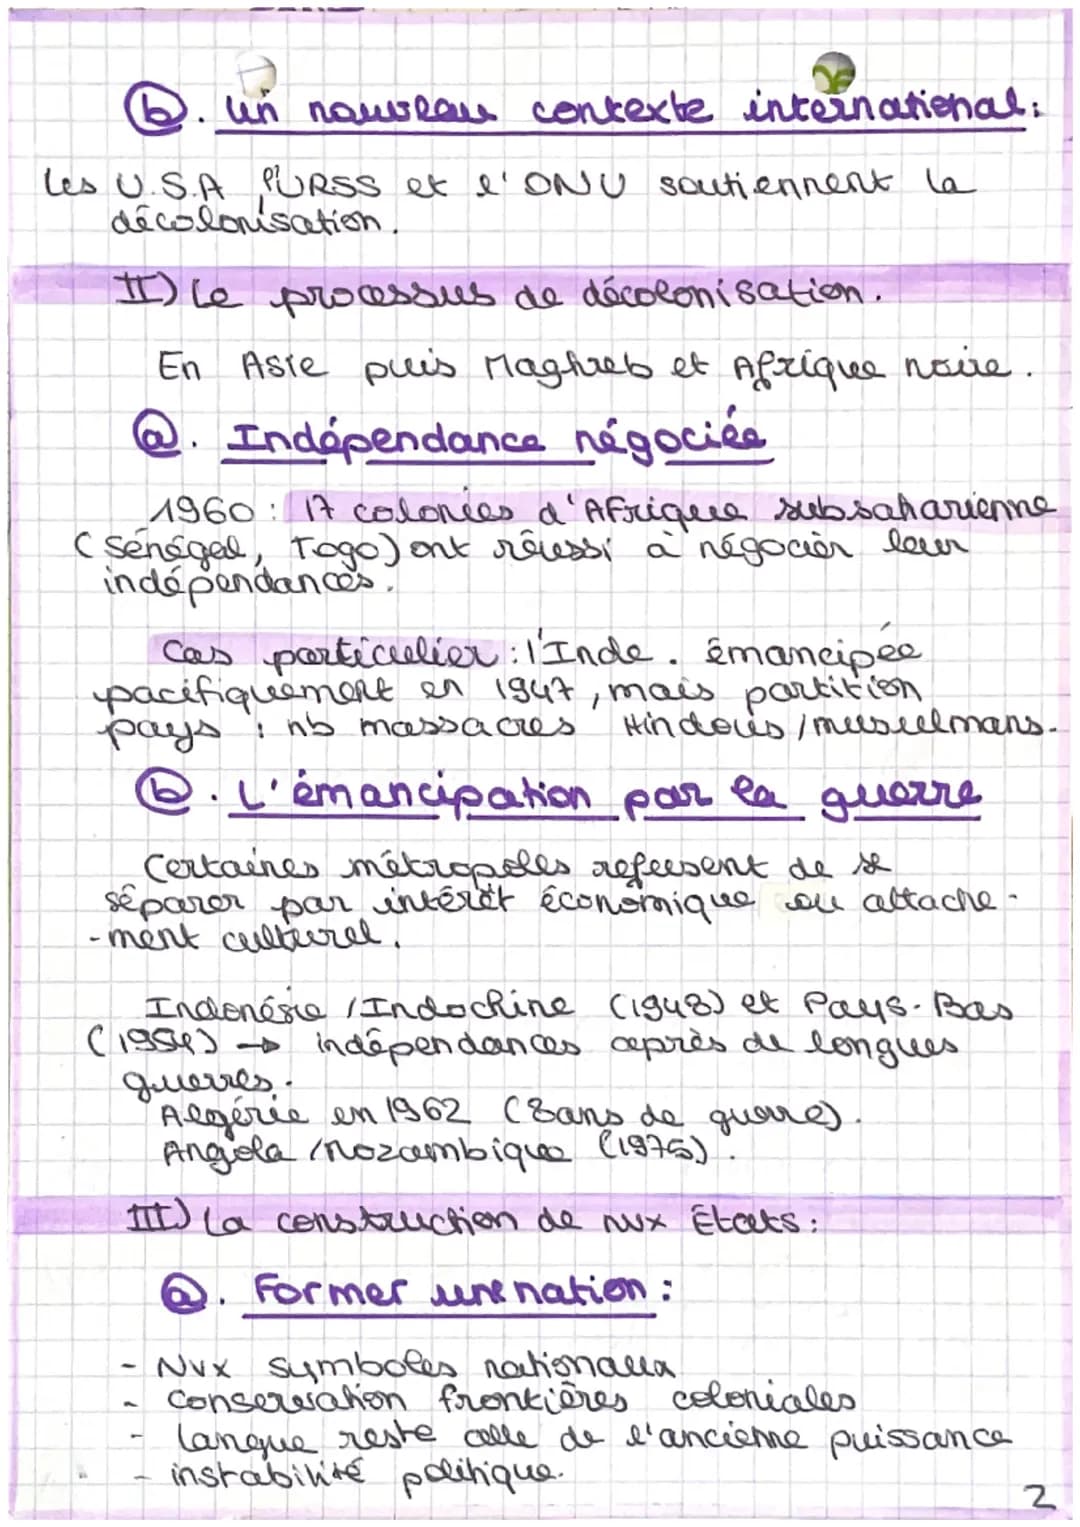 b. un nouveau contexte international:
Les U.S.A l'URSS et l'ONU soutiennent la
décolonisation.
II) Le processus de décolonisation.
En Asie puis Maghreb et Afrique noire.
a. Indépendance négociée
1960 : 17 colonies d'Afrique subsaharienne
(Sénégal, Togo) ont réussi à négocier leur
indépendances.
Cas particulier : l'Inde. émancipée
pacifiquement en 1947, mais partition
pays : nb massacres Hindous / musulmans.
b. L'émancipation par la guerre
Certaines métropoles refusent de se
séparer par intérêt économique ou attache-
-ment culturel.
Indonésie / Indochine (1948) et Pays-Bas
(1954) → indépendances après de longues
guerres.
Algérie en 1962 (8ans de guerre).
Angola / Mozambique (1975).
III) La construction de nvx États:
a. Former une nation :
- Nvx symboles nationaux
- conservation frontières coloniales
- langue reste celle de l'ancienne puissance
- instabilité politique.
2